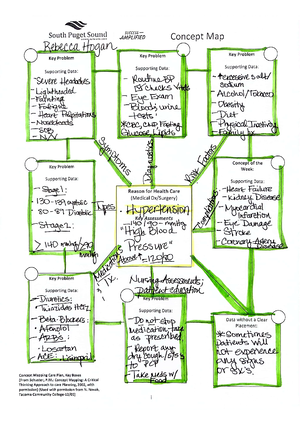 South Puget Sound
AMPLIFIED
Concept Map
Rebecca Hogan
Key Problem
Supporting Data:
- Severe Headaches
- Lightheaded
- Fainting
- Fatigue
- Heart Palpitations
- Nosebleeds
- SOB
- N/V
Key Problem
Supporting Data:
- Routine BP
checks
- Eye Exam
- Blood, urine
tests:
Glucose, Lipids
Key Problem
Supporting Data:
- Excessive salt/
sodium
- Alcohol/Tobacco
- Obesity
- Diet
- Physical Inactivity
- Family Hx
Symptoms
Diagnostics
Risk Factors
Key Problem
Supporting Data:
- Stage 1:
130-139 systolic
80-89 Diastolic
- Stage 2:
> 140 mmHg/90
mmHg
Types
Reason for Health Care
(Medical Dx/Surgery)
- Hypertension
Key Assessments
140/90 mmHg
"High Blood
Pressure"
Complications
Concept of the
Week:
Supporting Data:
- Heart Failure
- Kidney Disease
- Myocardial
Infarction
- Eye Damage
- Stroke
- Coronary Artery
Disease
Medications
Tx.
Nursing Assessments;
patient education
Key Problem
Supporting Data:
- Diuretics:
Thiazides HCTZ
- Beta-Blockers:
Atenolol
- ARBs:
- Losartan
- ACE: Lisinopril
Key Problem
Supporting Data:
- Do not stop
medication, take
as prescribed
- Report any
dry cough / s/s
to PCP
- Take meds w/
Food
Data without a Clear
Placement:
* Sometimes
patients will
not experience
any signs
or sx's
Concept Mapping Care Plan, Key Boxes